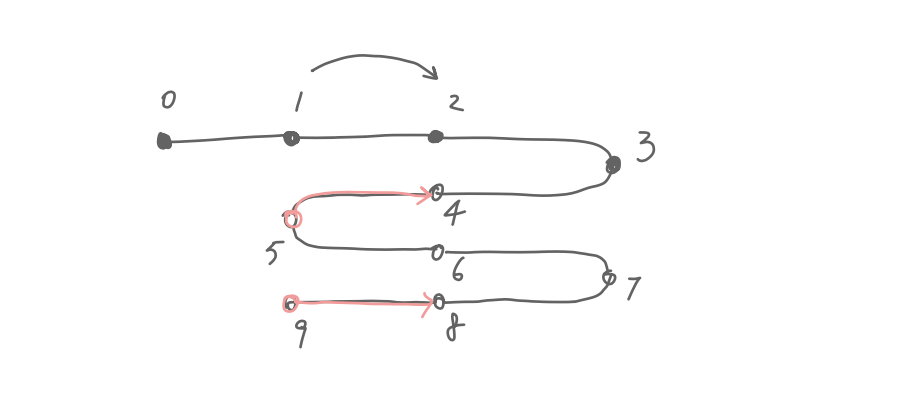 0 1 2
3
4
5
6
7
8
9